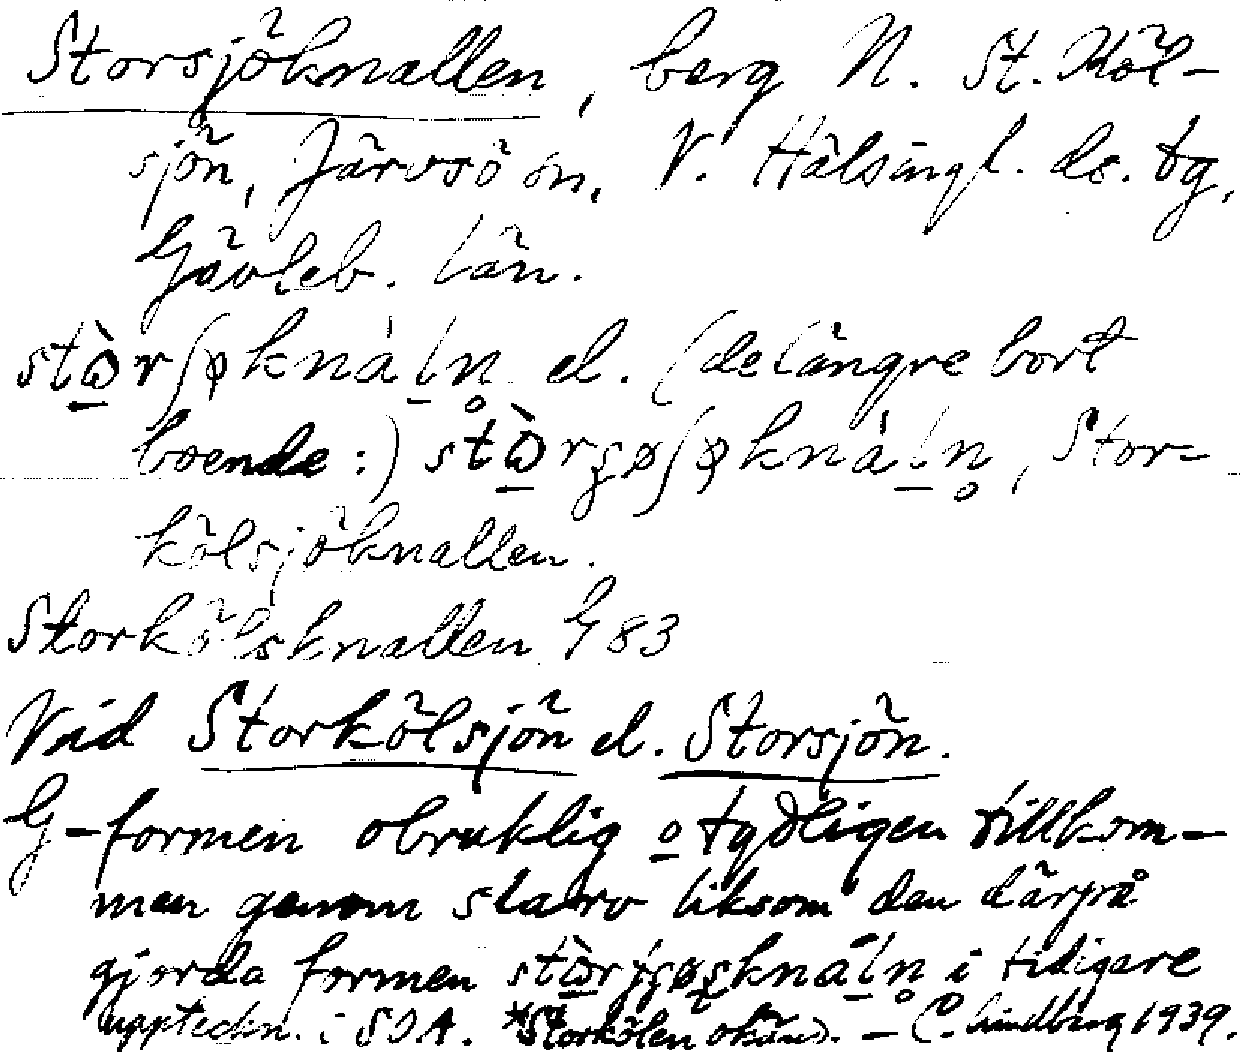 Storsjöknallen, berg N. St. Köl-
sjön, Järvsö sn, V. Hälsingl. ds. tg,
Gävleb. län.
stɷ̀rʃøknáln̥ el. (de längre bort
boende:) stɷ̀rʂøʃøknáln̥, Stor-
kölsjöknallen.
Storkölsknallen G 83
Vid Storkölsjön el. Storsjön.
G-formen obruklig o tydligen tillkom-
men genom skrivn liksom den därpå
gjorda formen i tidigare
uppteckn. i SOA. *Storkölen okänd. – C. Lindberg 1939.